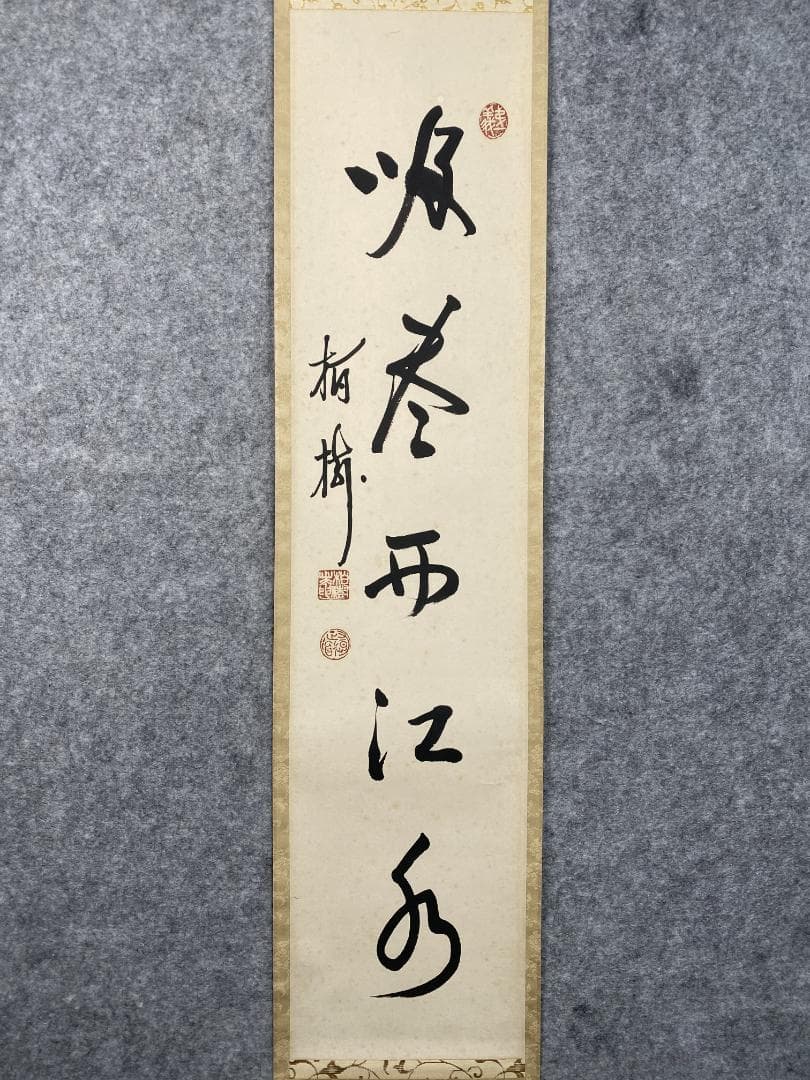 吸尽西江水
柏樹